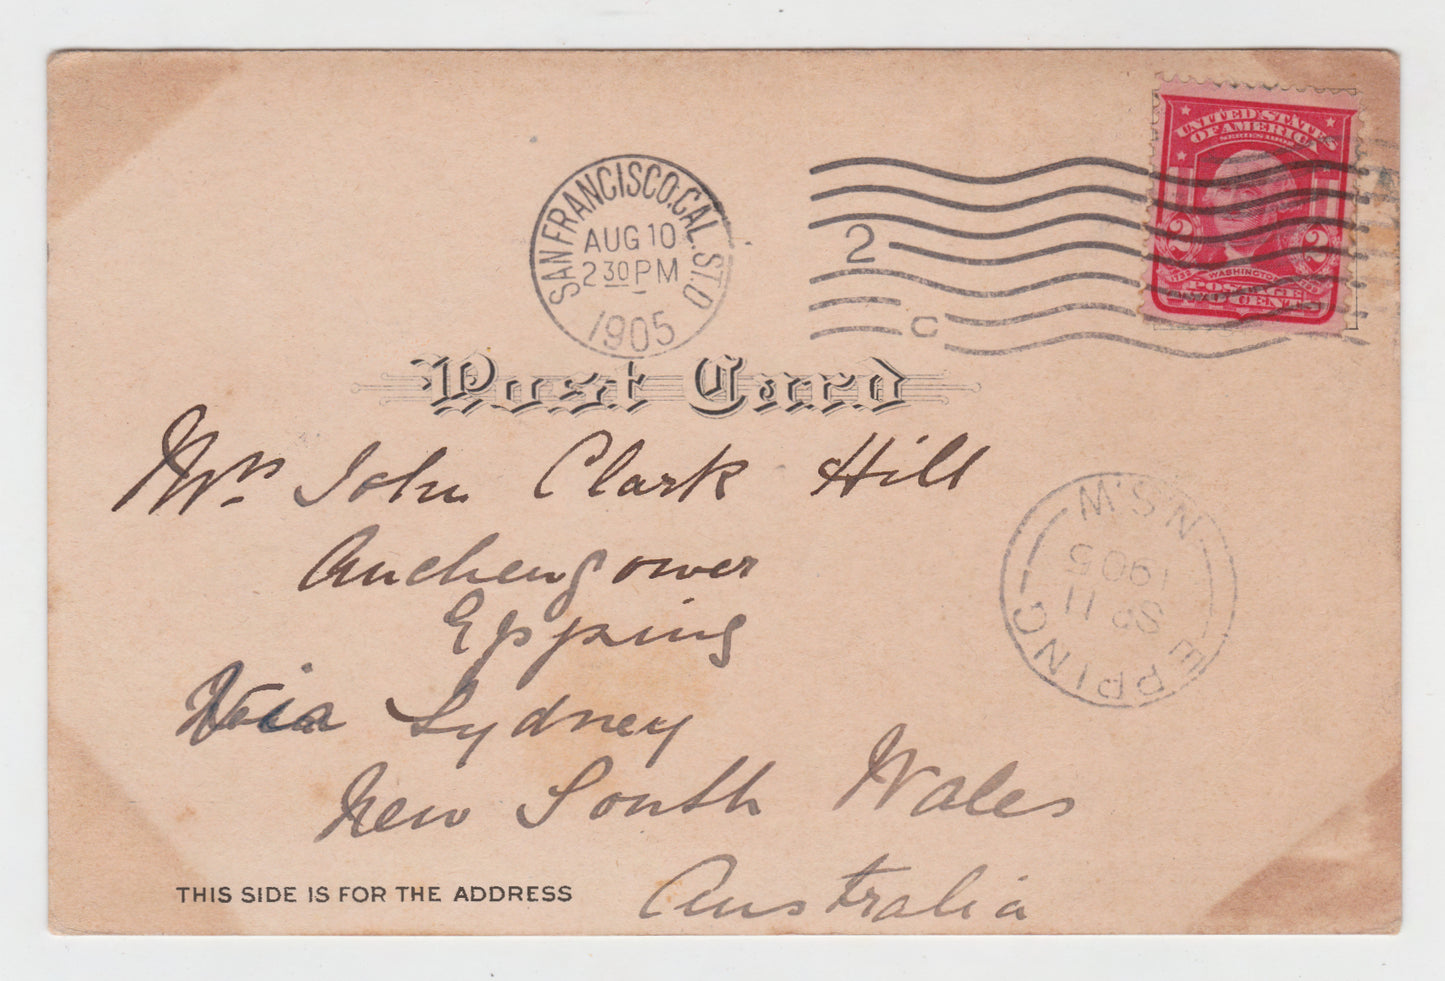 SAN FRANCISCO, CAL. STA. D
AUG 10
2 30 PM
1905
2
C
UNITED STATES
OF AMERICA
SERIES 1902
2 2
1732 WASHINGTON 1799
POSTAGE
TWO CENTS
Post Card
Mrs. John Clark Hill
Auchengower
Epping
Via Sydney
New South Wales
Australia
EPPING
SP 11
1905
N.S.W
THIS SIDE IS FOR THE ADDRESS